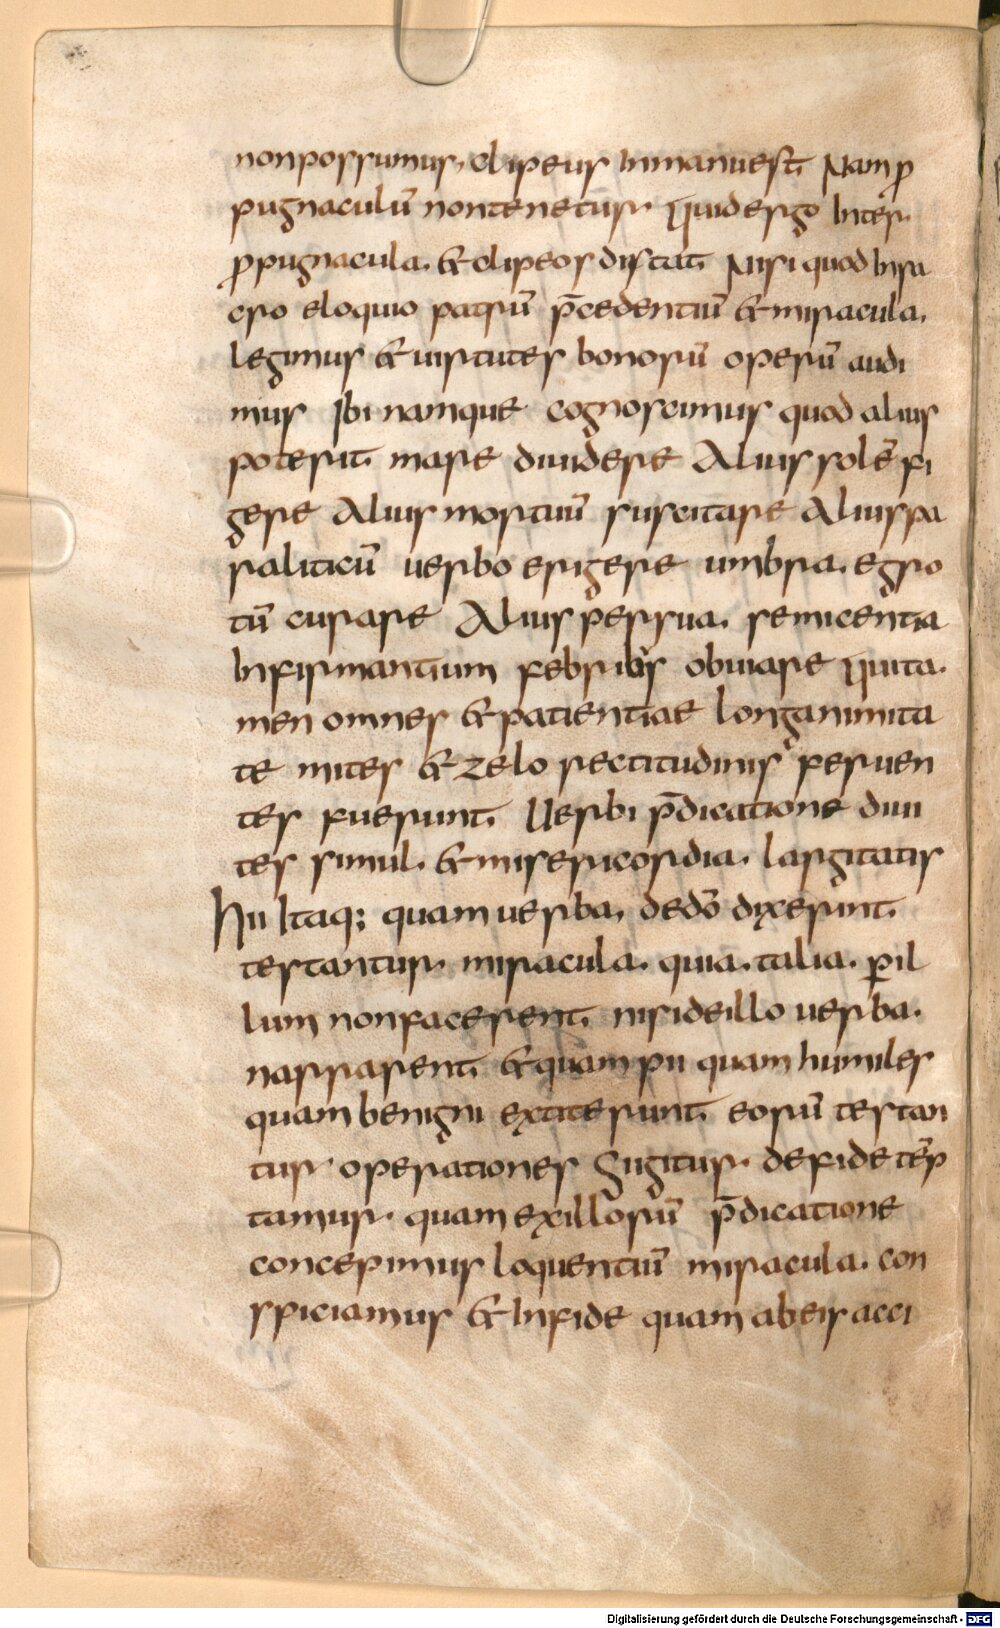 nonpossumus, clipeus Inmanuest. Nam ꝓ
pugnaculū nontenetur. Quidergo Inter.
ꝓpugnacula. & clipeos distat. Nisi quod Insa
cro eloquio patrū p̄cedentiū & miracula.
legimus & uirtutes bonorū operū audi
mus Ibi namque cognoscimus quod alius
poterit. mare diuidere Alius solē fi
gere Alius mortuū suscitare Aliuspa
raliticū uerbo erigere umbra. egro
tū curare Alius persua. semicentia
Infirmantium febribus obuiare Quita.
men omnes & patientiae longanimita
te mites & zelo rectitudinis feruen
tes fuerunt. Uerbi p̄dicatione diui
tes simul. & misericordia. largitatis
Hii Itaq; quam uerba, dedō dixerunt.
testantur. miracula. quia. talia. ꝑil
lum nonfacerent. nisideillo uerba.
narrarent. & quam pii quam humiles
quam benigni extiterunt. eorū testan
tur operationes Si igitur. defide tēp
tamur. quam exillorū p̄dicatione
concepimus loquentiū miracula. con
spiciamus & Infide quam abeis acci
Digitalisierung gefördert durch die Deutsche Forschungsgemeinschaft - DFG